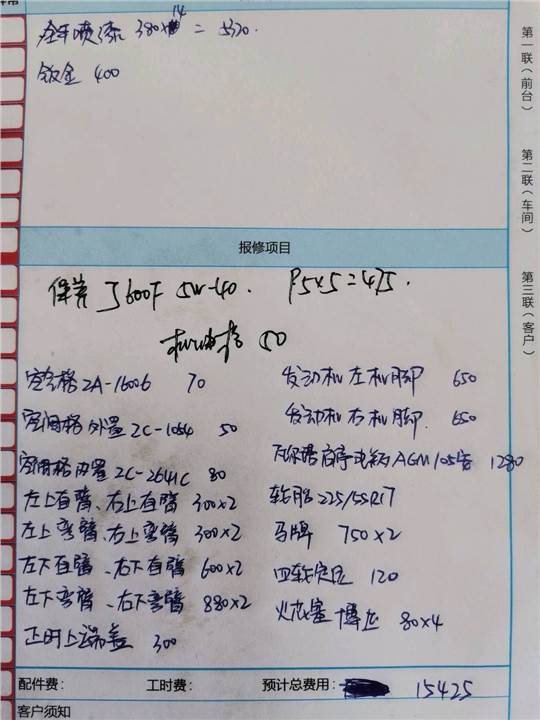 全车喷漆 380×14 = 5320.
钣金 400
第一联(前台)
第二联(车间)
第三联(客户)
报修项目
保养 J600F 5W-40. 95×5=475.
机油格 50
空气格 2A-16006 70
空调格 外置 2C-1054 50
空调格 内置 2C-2641C 80
左上直臂、右上直臂 300×2
左上弯臂、右上弯臂 300×2
左下直臂、右下直臂 600×2
左下弯臂、右下弯臂 880×2
正时上端盖 300
发动机 左机脚 650
发动机 右机脚. 650
瓦尔塔 启停电瓶 AGM 105安 1280
轮胎 225/55R17
马牌 750×2
四轮定位 120
火花塞 博世 80×4
配件费: 工时费: 预计总费用: 15425
客户须知